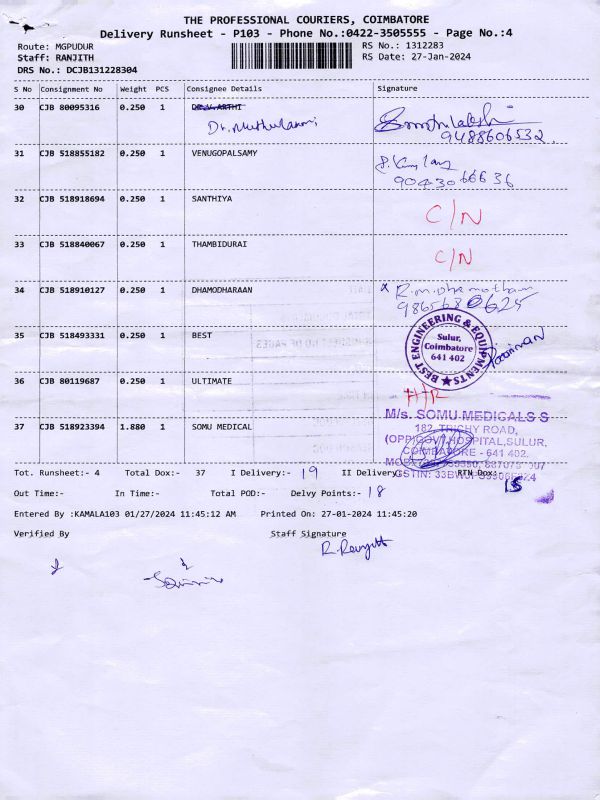 THE PROFESSIONAL COURIERS, COIMBATORE
Delivery Runsheet - P103 - Phone No.:0422-3505555 - Page No.:4
Route: MGPUDUR
RS No.: 1312283
Staff: RANJITH
RS Date: 27-Jan-2024
DRS No.: DCJB131228304
S No Consignment No Weight PCS Consignee Details Signature
30 CJB 80095316 0.250 1
9488606532
31 CJB 518855182 0.250 1 VENUGOPALSAMY
32 CJB 518918694 0.250 1 SANTHIYA C/N
33 CJB 518840067 0.250 1 THAMBIDURAI C/N
34 CJB 518910127 0.250 1 DHAMODHARAAN
9865680625
35 CJB 518493331 0.250 1 BEST
BEST ENGINEERING & EQUIPMENTS
Sulur,
Coimbatore
641 402
36 CJB 80119687 0.250 1 ULTIMATE
37 CJB 518923394 1.880 1 SOMU MEDICAL
M/s. SOMU MEDICALS S
182, TRICHY ROAD,
(OPP.GOVT.HOSPITAL,SULUR,
COIMBATORE - 641 402.
Tot. Runsheet:- 4 Total Dox:- 37 I Delivery:- 19 II Delivery:- RTN Dox:-
Out Time:- In Time:- Total POD:- Delvy Points:- 18
Entered By :KAMALA103 01/27/2024 11:45:12 AM Printed On: 27-01-2024 11:45:20
Verified By Staff Signature